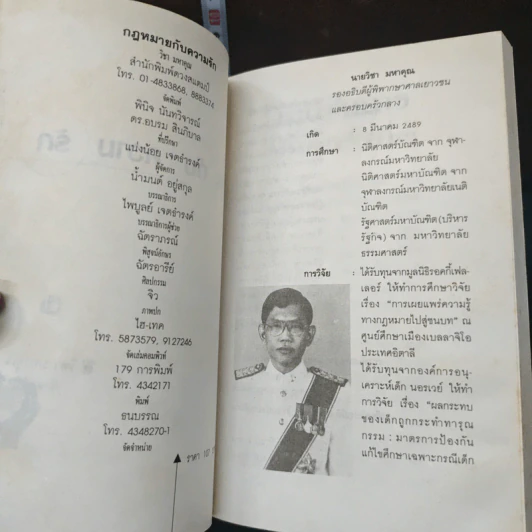 กฎหมายกับความรัก
วิชา มหาคุณ
สำนักพิมพ์ดวงสแตมป์
โทร. 01-4833868, 8883314
จัดพิมพ์
พินิจ นันทวิจารณ์
ดร.อบรม สินภิบาล
ที่ปรึกษา
แบ่งน้อย เจตธำรงค์
ผู้จัดการ
น้ำมนต์ อยู่สกุล
บรรณาธิการ
ไพบูลย์ เจตธำรงค์
บรรณาธิการผู้ช่วย
ฉัตราภรณ์
พิสูจน์อักษร
ฉัตรอารีย์
ศิลปกรรม
จิว
ภาพปก
ไฮ-เทค
โทร. 5873579, 9127246
จัดเล่มคอมพิวท์
179 การพิมพ์
โทร. 4342171
พิมพ์
ธนบรรณ
โทร. 4348270-1
จัดจำหน่าย
ราคา
นายวิชา มหาคุณ
รองอธิบดีผู้พิพากษาศาลเยาวชน
และครอบครัวกลาง
เกิด : 8 มีนาคม 2489
การศึกษา : นิติศาสตร์บัณฑิต จาก จุฬา-
ลงกรณ์มหาวิทยาลัย
นิติศาสตร์มหาบัณฑิต จาก
จุฬาลงกรณ์มหาวิทยาลัยเนติ
บัณฑิต
รัฐศาสตร์มหาบัณฑิต(บริหาร
รัฐกิจ) จาก มหาวิทยาลัย
ธรรมศาสตร์
การวิจัย : ได้รับทุนจากมูลนิธิรอคกี้เฟล-
เลอร์ ให้ทำการศึกษาวิจัย
เรื่อง "การเผยแพร่ความรู้
ทางกฎหมายไปสู่ชนบท" ณ
ศูนย์ศึกษาเมืองเบลลาจิโอ
ประเทศอิตาลี
ได้รับทุนจากองค์การอนุ-
เคราะห์เด็ก นอรเวย์ ให้ทำ
การวิจัย เรื่อง "ผลกระทบ
ของเด็กถูกกระทำทารุณ
กรรม : มาตรการป้องกัน
แก้ไขศึกษาเฉพาะกรณีเด็ก